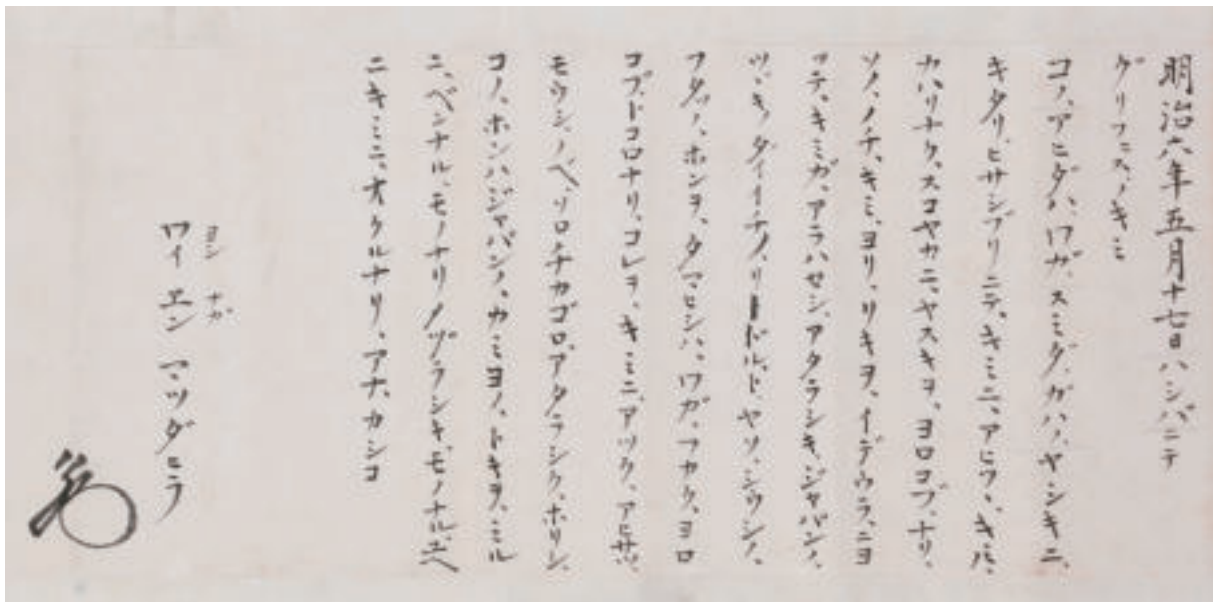 明治六年五月十七日ハシバニテ
グリフヒスノキミ
コノ、アヒダハ、ワガ、スミダ、ガハノ、ヤシキニ、
キタリ、ヒサシブリニテ、キミニ、アヒ
カハリナク、スコヤカニ、ヤスキヲ、ヨロコブ、ナリ、
ソノ、ノチ、キミ、ヨリ、リキヲ、イデウラ、ニヨ
ツテ、キミガ、アラハセシ、アタラシキ、ジヤパンノ、
ツヾキノダイイチノ、リードルト、ヤソ、シウシノ、
フタツノ、ホンヲ、タマヒシハ、ワガ、フカク、ヨロ
コブ、トコロナリ、コレヲ、キミニ、アツク、アヒサツ、
モウシ、ノベ、ソロチカゴロ、アタラシク、ホリシ、
コノ、ホンハジヤパンノ、カミヨノ、トキヲ、ミル
ニ、ベンナル、モノナリメヅラシキ、モノナルユヘ
ニキミニ、オクルナリ、アナ、カシコ
ヨシ ナガ
ワイ ヱン マツダヒラ